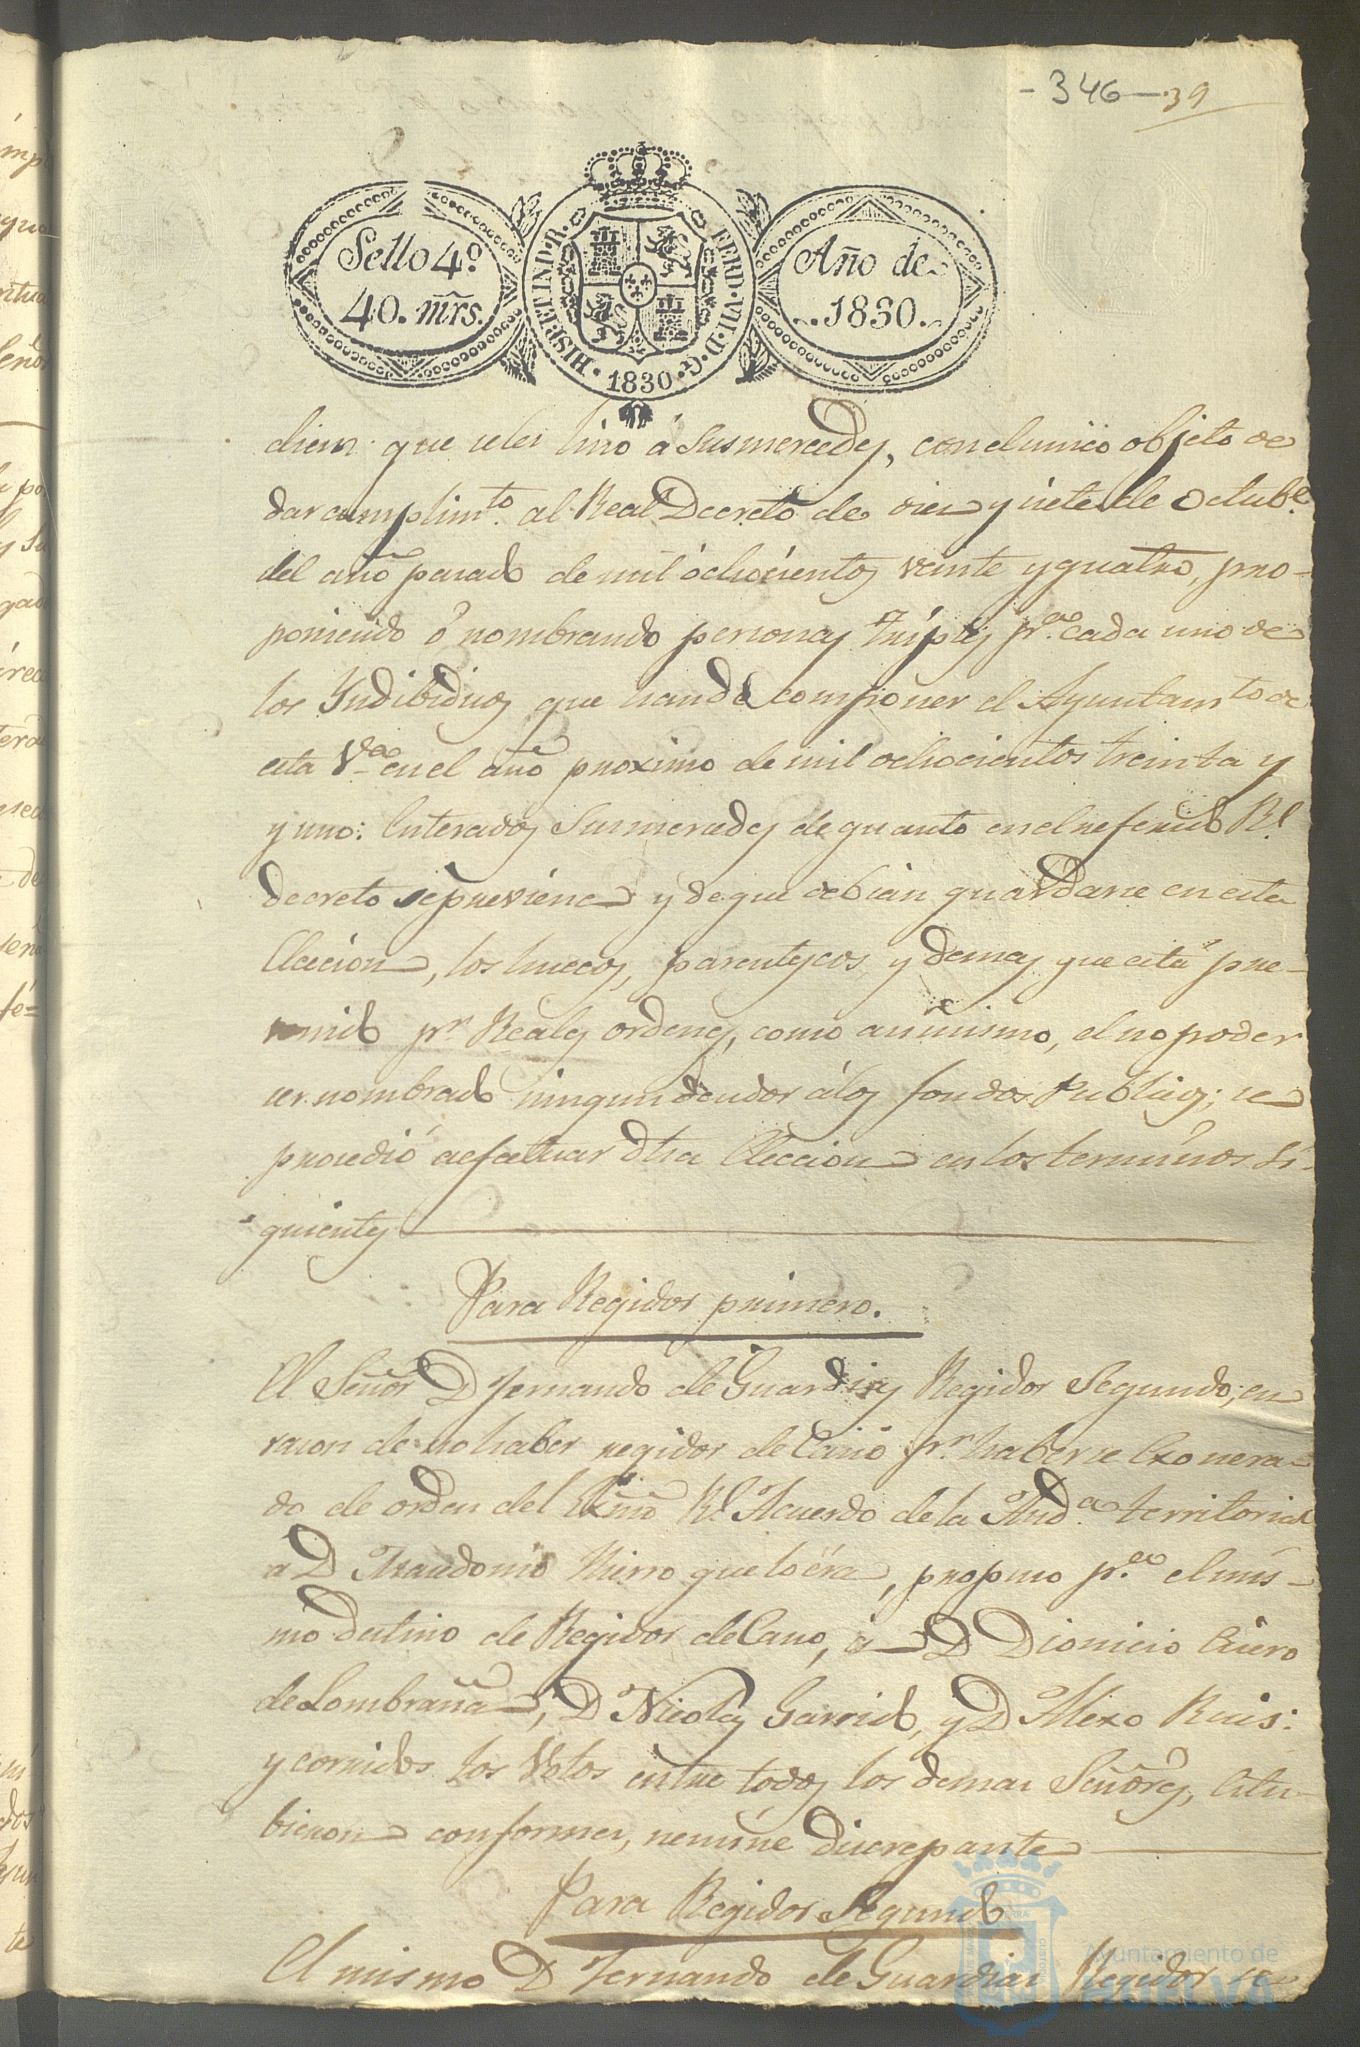 - 346 - 39
Sello 4º
40. mrs.
HISP. ET IND. R. FERD. VII. D. G. 1830
Año de
1830.
diem que seles hizo á Susmercedes, con el unico objeto de
dar cumplimto. al Real Decreto de diez y siete de Octube.
del año pasado de mil ochocientos veinte y quatro, pro-
poniendo ó nombrando personas triples pra. cada uno de
los Yndibiduos que hande componer el Ayuntamto de
esta Va. en el año proximo de mil ochocientos treinta y
y uno: Enterados Susmercedes de quanto en el referido Rl.
decreto sepreviene y de que debian guardarse en esta
Eleccion, los huecos, parentescos y demas que está pre-
venido pr. Reales ordenes, como asimismo, el no poder
ser nombrado ningun deudor álos fondos Publicos; se
prosedió aefectuar dha Eleccion en los terminos si-
guientes
Para Regidor primero.
El Señor D Fernando de Guardias Regidor Segundo, en
razon de no haber regidor de Cano pr. haberse Exonera-
do de orden del Exmo Rl. Acuerdo de la Auda. territorial
a D Traudonio Hierro que lo éra, propuso pra. el mis-
mo destino de Regidor de Cano, á D Dionicio Cuero
de Lombraña, D Nicolas Garrido, y D Alexo Ruis:
y corridos los Votos entre todos los demas Señores, Estu-
bieron conformes, nemine discrepante
Para Regidor Segundo
El mismo D Fernando de Guardias Regidor se
Ayuntamiento de
HUELVA